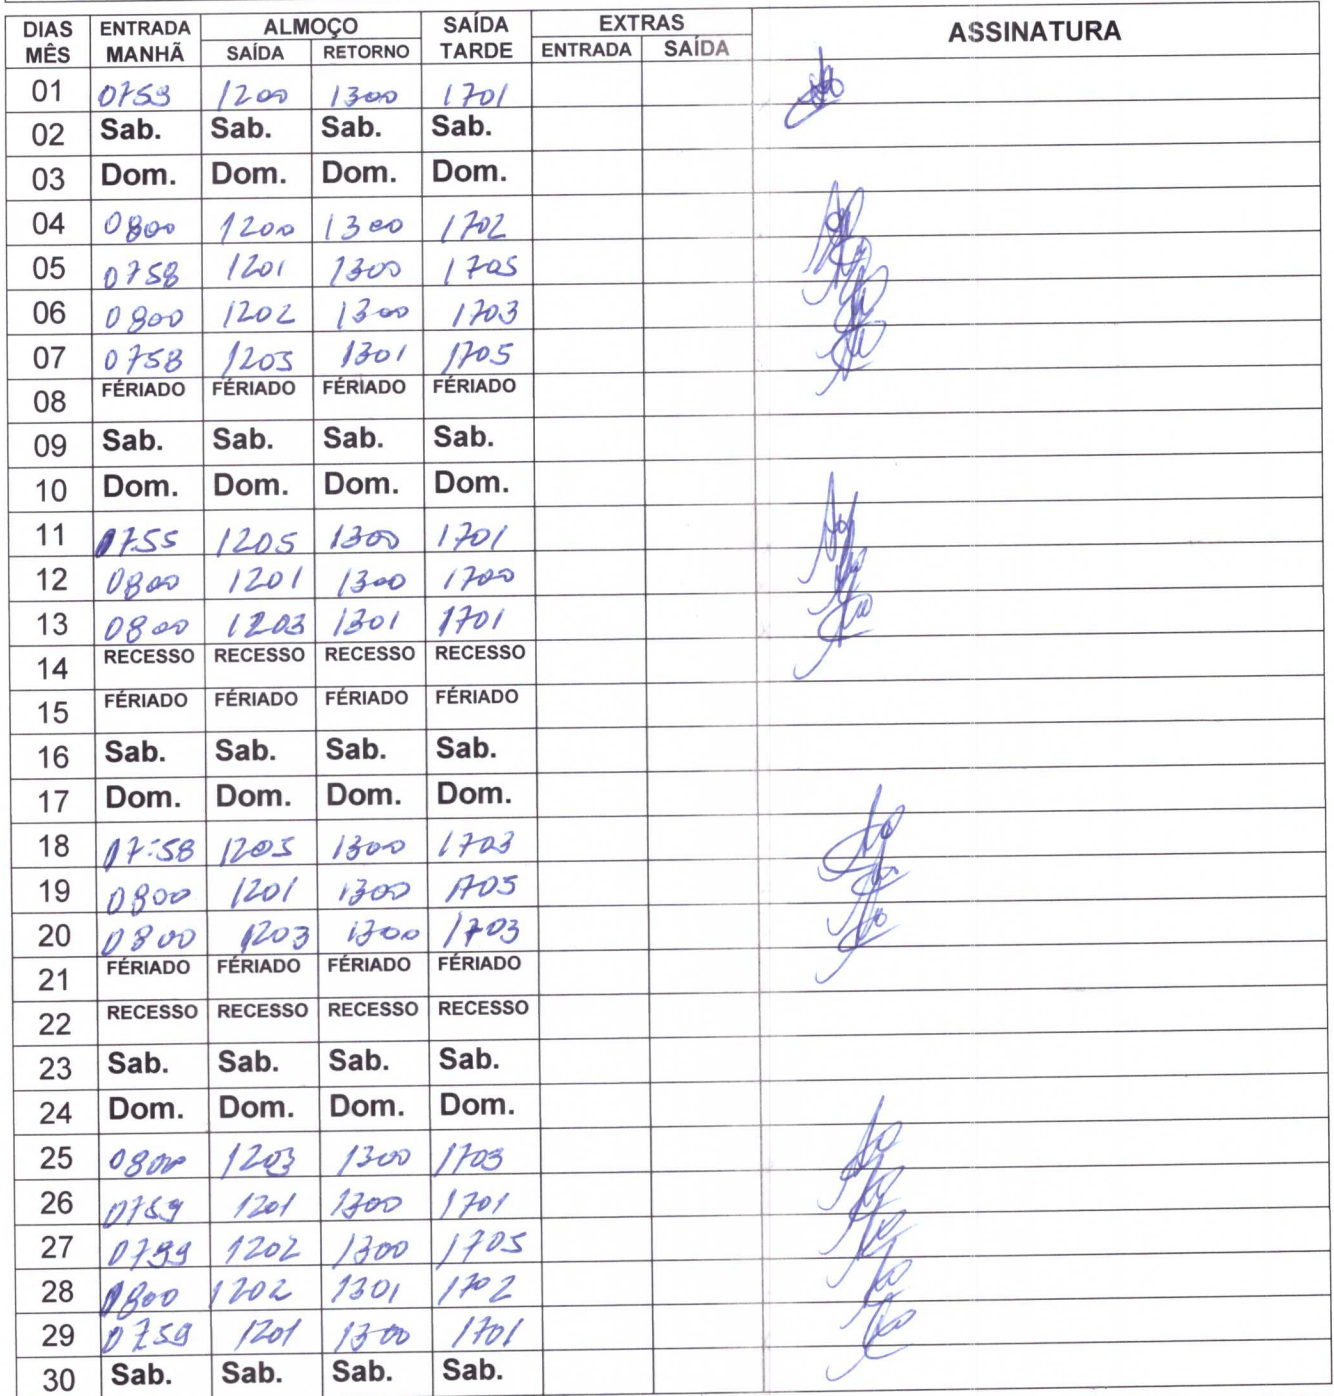 DIAS MÊS ENTRADA MANHÃ ALMOÇO SAÍDA RETORNO SAÍDA TARDE EXTRAS ENTRADA SAÍDA ASSINATURA
01 0759 1200 1300 1701
02 Sab. Sab. Sab. Sab.
03 Dom. Dom. Dom. Dom.
04 0800 1200 1300 1702
05 0758 1201 1300 1705
06 0800 1202 1300 1703
07 0758 1203 1301 1705
08 FÉRIADO FÉRIADO FÉRIADO FÉRIADO
09 Sab. Sab. Sab. Sab.
10 Dom. Dom. Dom. Dom.
11 0755 1205 1300 1701
12 0800 1201 1300 1700
13 0800 1203 1301 1701
14 RECESSO RECESSO RECESSO RECESSO
15 FÉRIADO FÉRIADO FÉRIADO FÉRIADO
16 Sab. Sab. Sab. Sab.
17 Dom. Dom. Dom. Dom.
18 07:58 1205 1300 1703
19 0800 1201 1300 1705
20 0800 1203 1300 1703
21 FÉRIADO FÉRIADO FÉRIADO FÉRIADO
22 RECESSO RECESSO RECESSO RECESSO
23 Sab. Sab. Sab. Sab.
24 Dom. Dom. Dom. Dom.
25 0800 1203 1300 1703
26 0759 1201 1300 1701
27 0759 1202 1300 1705
28 0800 1202 1301 1702
29 0759 1201 1300 1701
30 Sab. Sab. Sab. Sab.